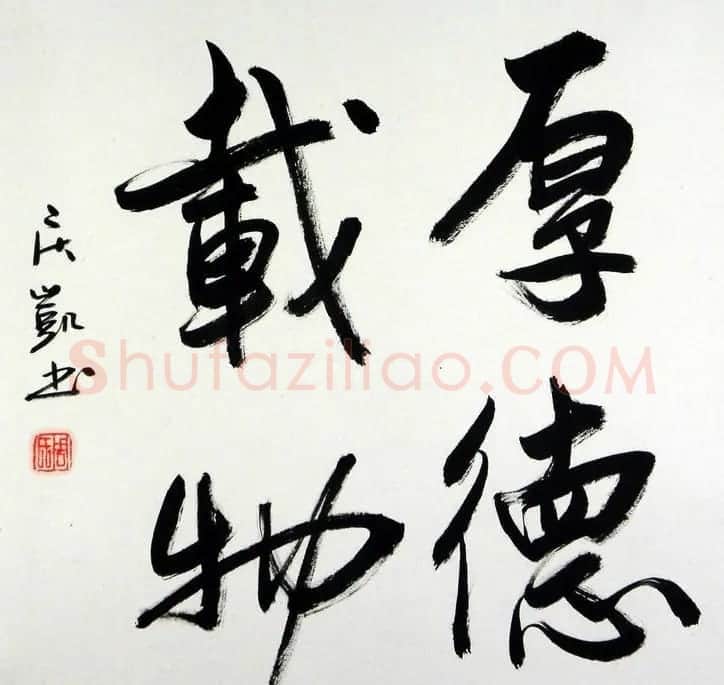 厚德
載物
凱书
Shufaziliao.COM